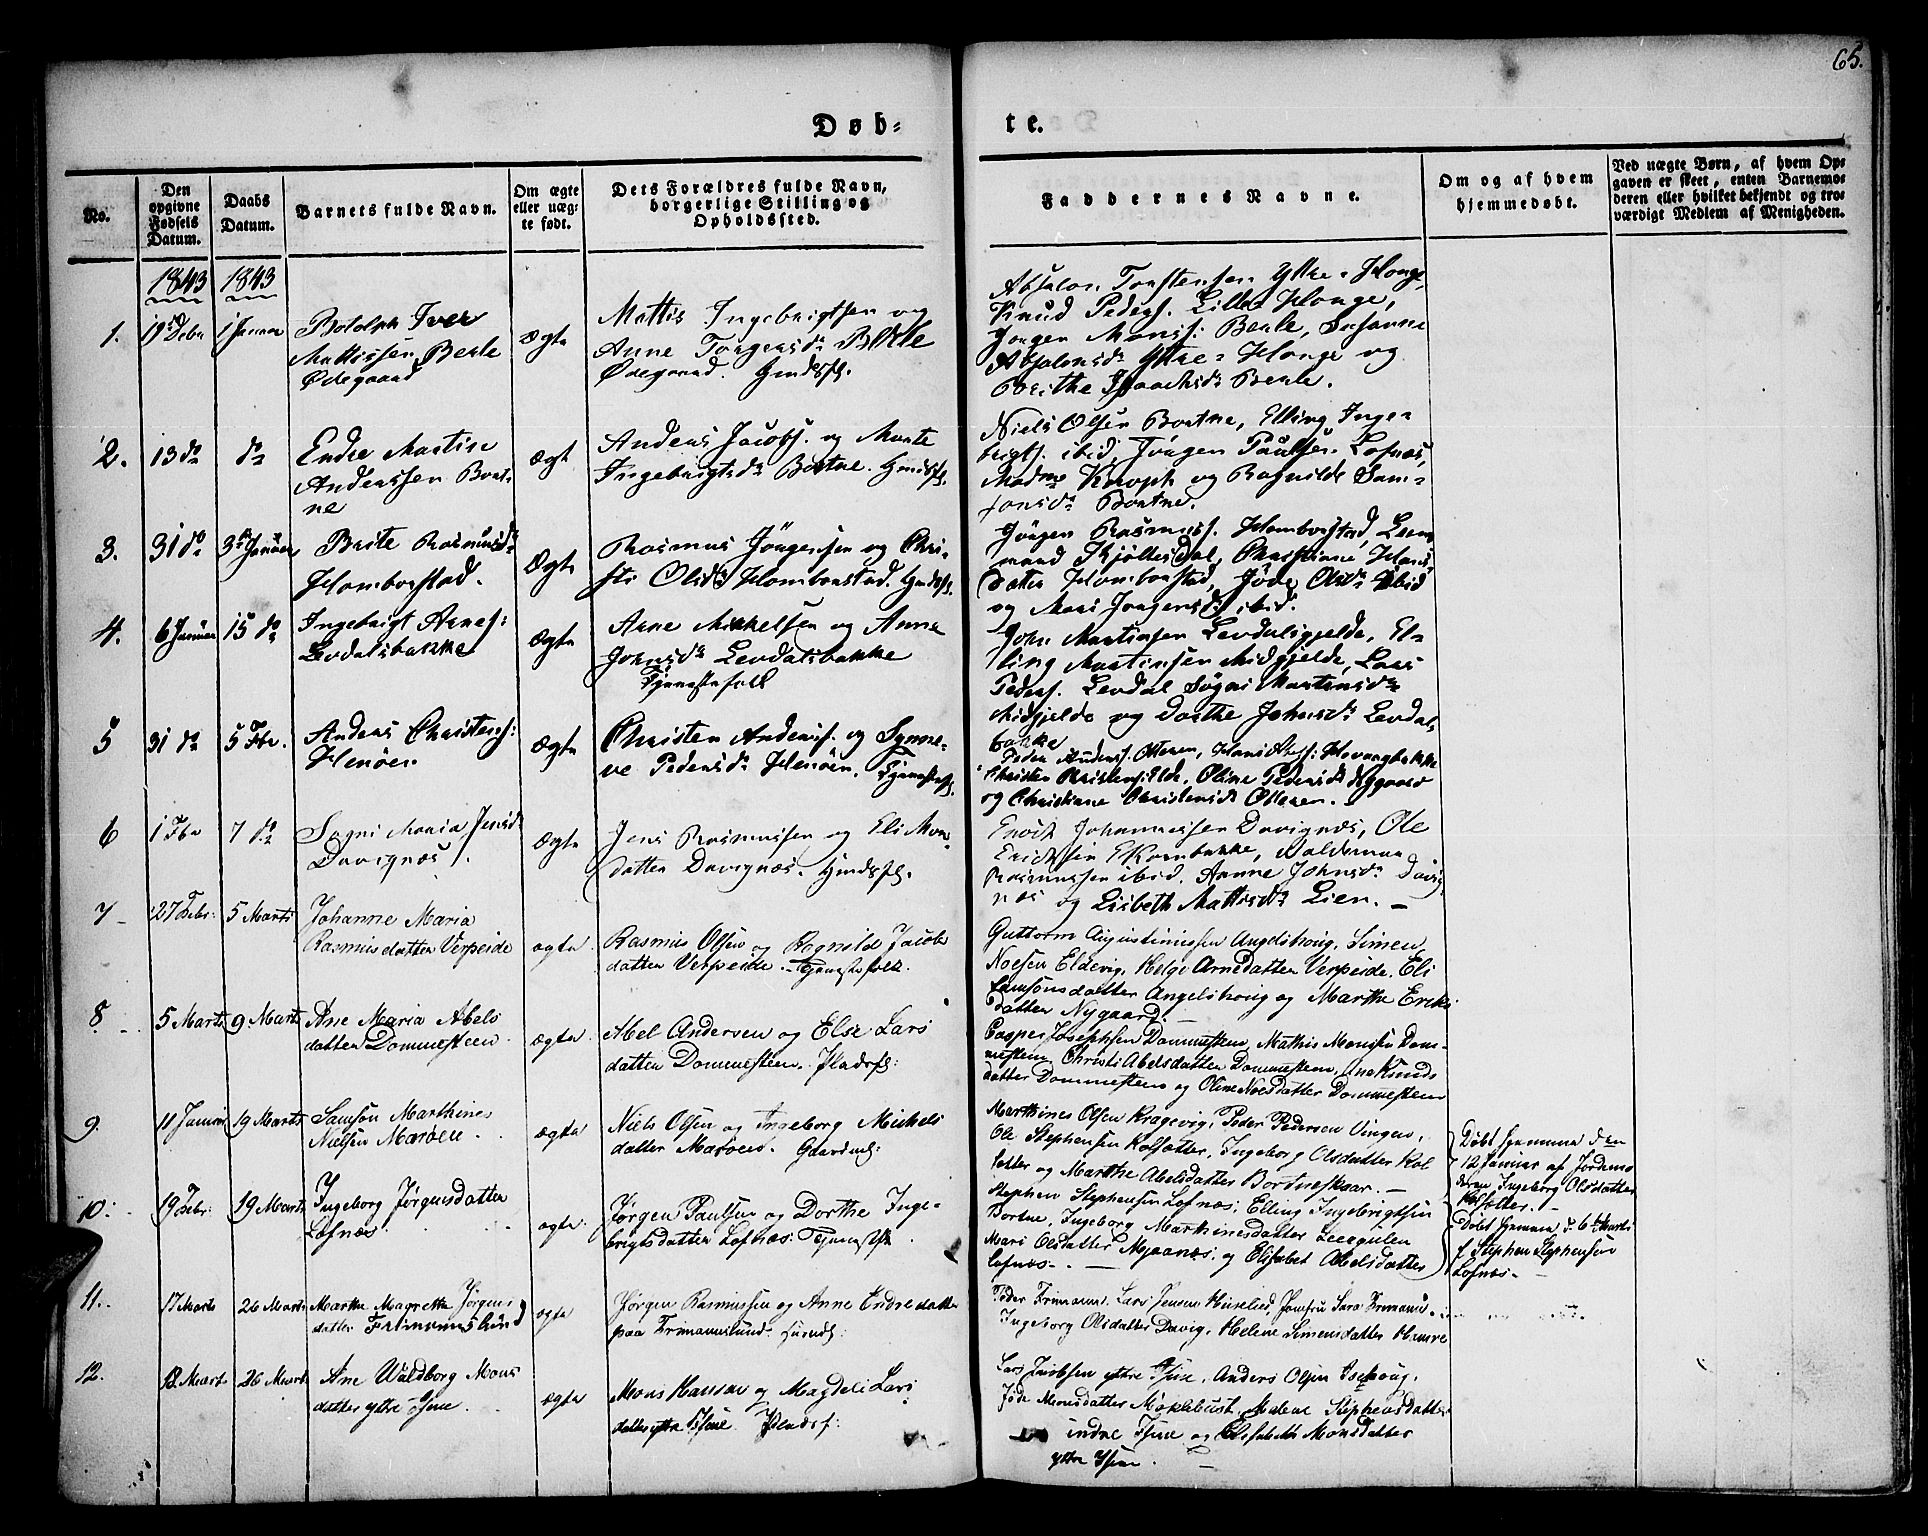 65.
Døb-
te.
No.
Den opgivne Fødsels Datum.
Daabs Datum.
Barnets fulde Navn.
Om ægte eller uægte født.
Dets Forældres fulde Navn, borgerlige Stilling og Opholdssted.
Faddernes Navne.
Om og af hvem hjemmedøbt.
Ved uægte Børn, af hvem Opgaven er skeet, enten Barnemoderen eller hvilket bekjendt og troværdigt Medlem af Menigheden.
1843 1843
1. 19 Debr 1 Januar
Botolph Iver
Mattissen Berle
Ødegaard
Ægte
Mattis Ingebrigtsen og
Anne Torgersdr Berle
Ødegaard. Huusf.
Absalon Torstensen Yttre-Houge,
Knud Peders. Lille Houge,
Jørgen Monss: Berle, Susanne
Absalonsdr Yttre-Houge og
Brithe Isaachsdr Berle.
2. 13 do do
Endre Martin
Anderssen Bort-
ne
Ægt
Anders Jacobs. og Marte
Ingebrigtsdr Bortne.
Niels Olsen Bortne, Elling Inge-
brigts. ibid, Jörgen Paulsen Lofnæs,
Madme Knoph og Ragnilde Sam-
sonsdr Bortne.
3. 31 do 3 Januar
Brite Rasmusdr
Homborstad.
Ægte
Rasmus Jörgensen og Chri-
sti Olsdr Homborstad.
Jörgen Rasmuss. Homborstad,
mand Kjöllesdal, Christiane Hans
datter Homborstad, Jöde Olsdr ibid
og Mari Jørgensdr ibid.
4. 6 Januar 15 do
Ingebrigt Arnes:
Levdalsbakke
Ægte
Arne Mikkelsen og Anne
Johnsdr Levdalsbakke
Tjenestefolk
John Martinsen Levdalsgjelde, El-
ling Martinsen Midgjelde, Lars
Peders. Levdal Søgni Martinsdr
Midgjelde og Dorthe Johnsdr Levdals
bakke
5 31 do 5 Fbr.
Anders Christens:
Henøen
Ægte
Christen Anders. og Synne-
ve Pedersdr Henøen.
Peder Anders. Otteren, Hovsbakke
Christen Christens. Ide, Oline Pedersdr Nygaard
og Christiane Christensdr Otteren.
6 1 Fbr 7 do
Søgni Maria Jensdr
Davignæs.
Ægte
Jens Rasmussen og Eli Mon-
datter Davignæs.
Enok Johannessen Davignæs, Ole
Ericksen Kornbakke, Waldemar
Rasmussen ibid. Anne Johnsdr Davig
næs og Lisbeth Mattisdr Lien. —
7 - 27 Febr: 5 Marts
Johanne Maria
Rasmusdatter Verpeide
ægte
Rasmus Olsen og Ragnild Jacobs
datter Verpeide. — Tjenestefolk.
Guttorm Augustinussen Angelshoug, Simen
Noesen Eldevig, Helge Arnedatter Verpeide, Eli
Samsonsdatter Angelshoug og Marthe Eriks
datter Nygaard. —
8. 5 Marts 9. Marts
Ane Maria Abels
datter Dommesteen.
ægte
Abel Andersen og Else Lars
datter Dommesteen. Pladsf:
Casper Josephsen Dommesteen, Mathis Monsen Dom-
mesteen, Christi Abelsdatter Dommesteen, Ane Knuds
datter Dommesteen og Oline Noesdatter Dommesteen
9. 11 Januar 19 Marts
Samson Marthines
Nielsen Marøen.
ægte
Niels Olsen og Ingeborg Michels
datter Marøen. Gaardm:
Marthines Olsen Kragevig, Peder Pedersen Vingen,
Ole Stephensen Kolsætter, Ingeborg Olsdatter Kol
sætter og Marthe Abelsdatter Bortneskaar. —
Døbt hjemme den
12 Januar af Jordemo
deren Ingeborg Olsdatter
Kolsætter. —
10. 19 Febr: 19 Marts
Ingeborg Jørgensdatter
Lofnæs.
ægte.
Jørgen Paulsen og Dorthe Inge-
brigtsdatter Lofnæs: Tjenestfk
Stephen Stephensen Lofnæs, Elling Ingebrigtsen
Bortne, Ingeborg Marthinesdatter Leergulen
Mari Olsdatter Myrnæs, og Elisabet Abelsdatter
Lofnæs. —
Døbt hjemme d. 6 Marts
f. Stephen Stephensen
Lofnæs. —
11. 17 Marts 26 Marts
Marthe Magrethe Jørgens
datter Frimannslund
ægte
Jørgen Rasmussen og Anne Endredatter
paa Frimannslund.
Peder Frimann, Lars Jensen Huselid, Jomfru Sara Frimann,
Ingeborg Olsdatter Davig, Helene Simensdatter Hamre
12. 12 Marts 26 Marts
Ane Waldborg Mons
datter yttre Hjine.
ægte
Mons Hansen og Magdeli Lars
datter yttre Hjine. Pladsf:
Lars Jacobsen yttre Hjine, Anders Olsen
Jøde Monsdatter Møklebust, Malene Stephensdatter
indre Hjine og Elisabeth Monsdatter
yttre Hjine. —